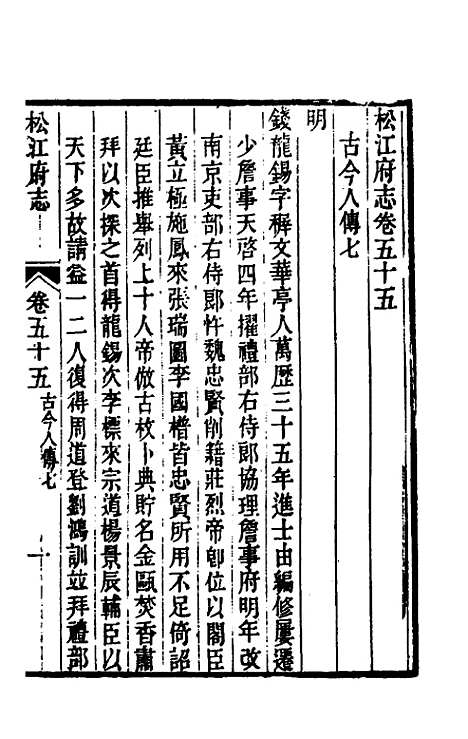 松江府志卷五十五
古今人傳七
明
錢龍錫字稺文華亭人萬歷三十五年進士由編修屢遷
少詹事天啓四年擢禮部右侍郎協理詹事府明年改
南京吏部右侍郎忤魏忠賢削籍莊烈帝卽位以閣臣
黃立極施鳳來張瑞圖李國𣚴皆忠賢所用不足倚詔
廷臣推舉列上十人帝倣古枚卜典貯名金甌焚香肅
拜以次探之首得龍錫次李標來宗道楊景辰輔臣以
天下多故請益一二人復得周道登劉鴻訓竝拜禮部
松江府志
卷五十五
古今人傳七
一